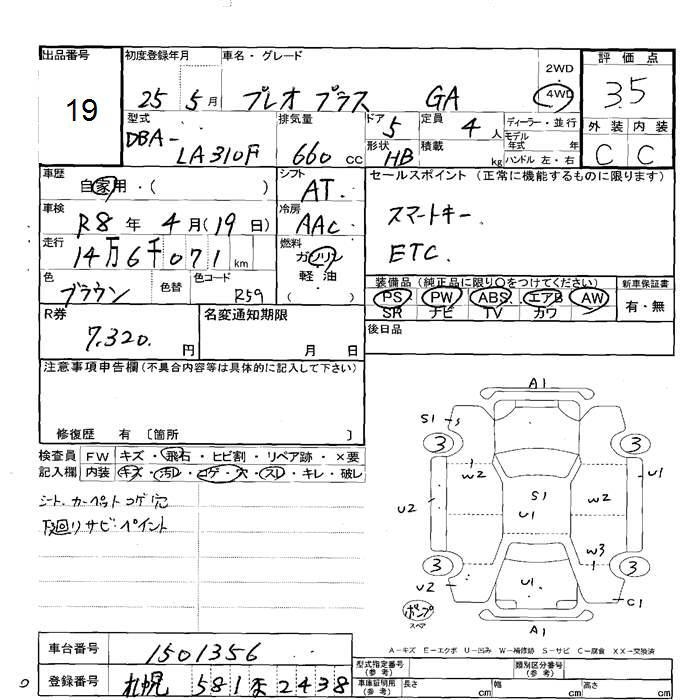 出品番号 初度登録年月 車名・グレード 2WD・4WD 評価点
19 25 5月 プレオ プラス GA 3.5
型式 排気量 ドア 定員 ディーラー・並行 外装 内装
DBA-LA310F 660cc 5 4人 モデル年式 年 C C
形状 HB 積載 kg ハンドル 左・右
車歴 シフト セールスポイント (正常に機能するものに限ります)
自家用・( ) AT
車検 冷房 スマートキー
R8年 4月(19日) AAC ETC
走行 燃料
14万6千071km ガソリン
色 色替 色コード 軽油
ブラウン R59 ( )
装備品 (純正品に限り○をつけてください) 新車保証書
PS PW ABS エアB AW 有・無
SR ナビ TV カワ
R券 名変通知期限 後日品
7,320円 月 日
注意事項申告欄 (不具合内容等は具体的に記入して下さい)
修復歴 有 〔箇所 〕
検査員 FW キズ・飛石・ヒビ割・リペア跡・×要
記入欄 内装 キズ・汚れ・コゲ・穴・スレ・キレ・破レ
シート、カーペットコゲ穴
下廻りサビ・ペイント
A1
S1 S
3 3
W2 U1
U2 S1 W2
U1
W3
3 3
U2 U1 C1
ポンプ
スペア
A1
A−キズ E−エクボ U−凹み W−補修跡 S−サビ C−腐食 XX−交換済
車台番号 1501356
型式指定番号(参考) 類別区分番号(参考)
登録番号 札幌 581 2438
車庫証明用(参考) 長さ cm 幅 cm 高さ cm